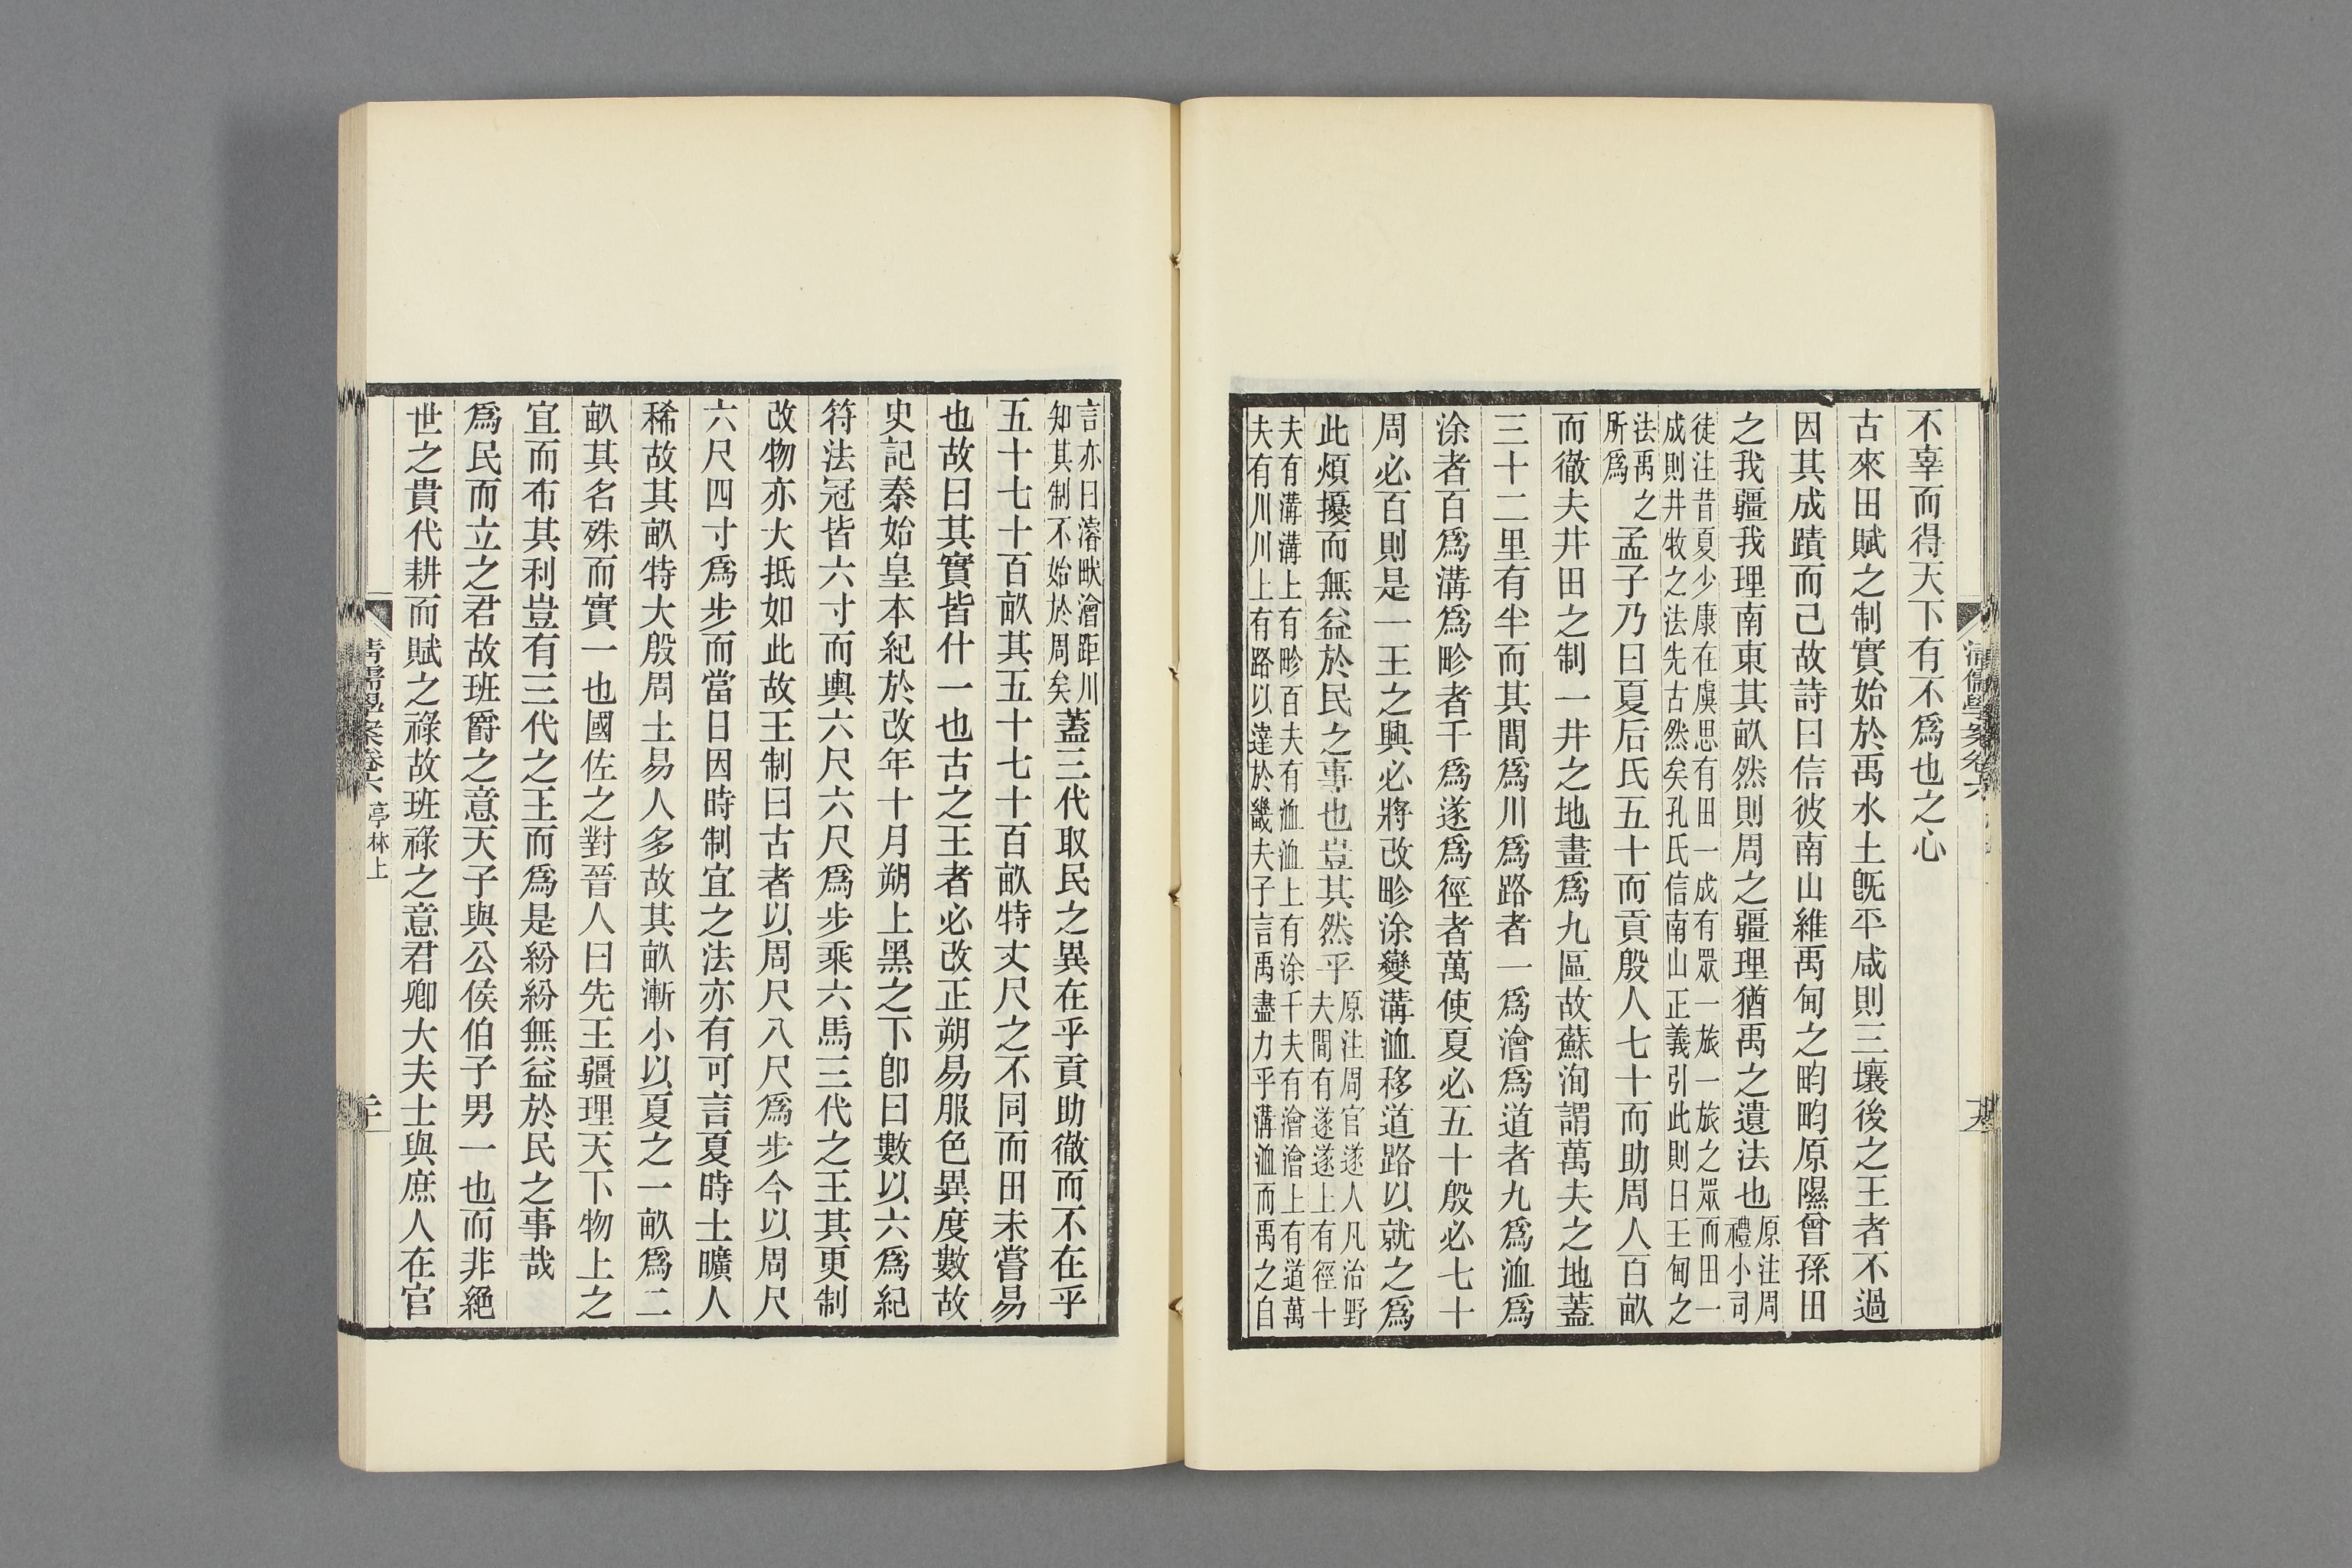 不辜而得天下有不爲也之心
古來田賦之制實始於禹水土旣平咸則三壤後之王者不過
因其成蹟而已故詩曰信彼南山維禹甸之畇畇原隰曾孫田
之我疆我理南東其畝然則周之疆理猶禹之遺法也原注周
禮小司
徒注昔夏少康在虞思有田一成有眾一旅一旅之眾而田一
成則井牧之法先古然矣孔氏信南山正義引此則曰王甸之
法禹之
所爲
孟子乃曰夏后氏五十而貢殷人七十而助周人百畝
而徹夫井田之制一井之地畫爲九區故蘇洵謂萬夫之地蓋
三十二里有半而其間爲川爲路者一爲澮爲道者九爲洫爲
涂者百爲溝爲畛者千爲遂爲徑者萬使夏必五十殷必七十
周必百則是一王之興必將改畛涂變溝洫移道路以就之爲
此煩擾而無益於民之事也豈其然乎原注周官遂人凡治野
夫間有遂遂上有徑十
夫有溝溝上有畛百夫有洫洫上有涂千夫有澮澮上有道萬
夫有川川上有路以達於畿夫子言禹盡力乎溝洫而禹之自
清儒學案卷六
十九
言亦曰濬畎澮距川
知其制不始於周矣
蓋三代取民之異在乎貢助徹而不在乎
五十七十百畝其五十七十百畝特丈尺之不同而田未嘗易
也故曰其實皆什一也古之王者必改正朔易服色異度數故
史記秦始皇本紀於改年十月朔上黑之下卽曰數以六爲紀
符法冠皆六寸而輿六尺六尺爲步乘六馬三代之王其更制
改物亦大抵如此故王制曰古者以周尺八尺爲步今以周尺
六尺四寸爲步而當日因時制宜之法亦有可言夏時土曠人
稀故其畝特大殷周土易人多故其畝漸小以夏之一畝爲二
畝其名殊而實一也國佐之對晉人曰先王疆理天下物土之
宜而布其利豈有三代之王而爲是紛紛無益於民之事哉
爲民而立之君故班爵之意天子與公侯伯子男一也而非絕
世之貴代耕而賦之祿故班祿之意君卿大夫士與庶人在官
清儒學案卷六 亭林上